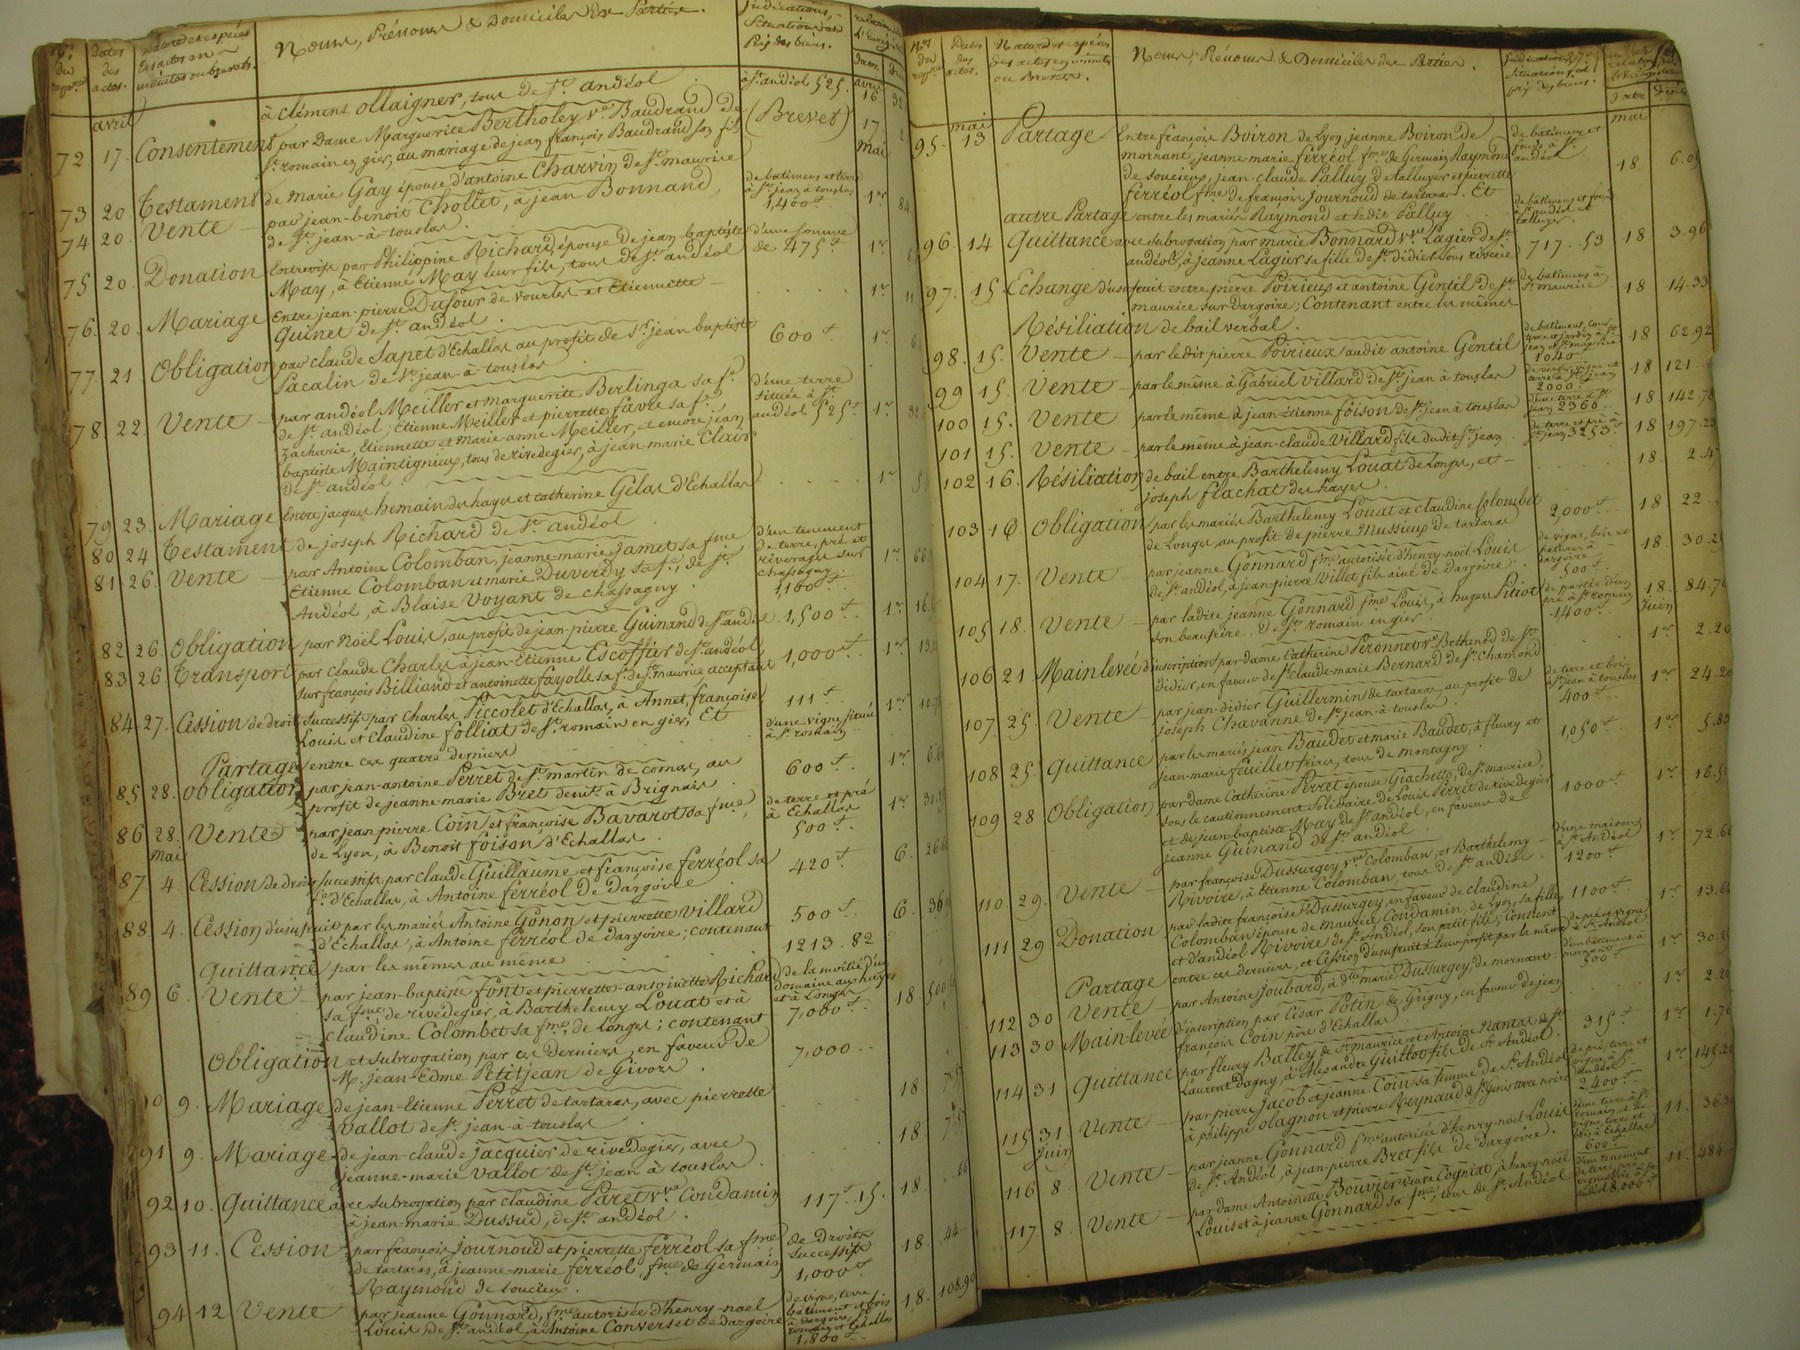 Nos du repre. | Dates des actes. | Nature et espèces des actes en minutes ou brevets. | Noms, Prénoms & Domiciles des Parties. | Indications, Situations et Prix des biens.
avril
à Clément Ollaigner, tous de St. andéol | à St. andéol 525. | avril 16
72. 17. Consentement par Dame Marguerite Bertholey ve. Baudrand de | (Brevet) | 17.
St. romain en gier, au mariage de jean françois Baudrand son fils | mai
73 20. Testament de marie Gay épouse d'antoine Charvin de St. maurice
74 20. Vente — par jean-benoit Chollet, à jean Bonnand, | de batimens et terre à St. jean à touslas 1,400 | 1er 84
de St. jean-à-touslas.
75 20. Donation Entrevifs par Philippine Richard, épouse de jean-baptiste | d'une somme de 475 | 1er
May, à Etienne May leur fils, tous de St. andéol
76. 20. Mariage Entre jean-pierre Dufour de vourles et Etiennette | 1er
Guinet de St. andéol.
77. 21. Obligation par claude Sapet d'Echallas au profit de Sr. jean baptiste | 600 | 1er
Pacalin de St. jean-à-touslas
78. 22. Vente — par andéol Meiller et marguerite Berlinga sa fe. | d'une terre située à St. andéol 525 | 1er
de St. andéol; Etienne Meiller et pierrette favre sa fe.,
zacharie, Etiennette et marie-anne Meiller, et encore jean
baptiste Maintignieux, tous de rivedegier, à jean-marie Clair
de St. andéol.
79 23. Mariage Entre jacques hemain des hayes et catherine Gélas d'Echallas | 1er
80 24 Testament de joseph Richard de St. andéol
81 26. Vente — par Antoine Colomban, jeanne-marie Jamet sa fme | d'un tenement de terre, pré et riverages sur chassagny 1,100 | 1er 66
Etienne Colomban et marie Duverdy sa fe., de St.
Andéol, à Blaise Voyant de chassagny
82 26. Obligation par Noël Louis, au profit de jean-pierre Guinand de St. andéol | 1,500 | 1er 16.
83 26 Transport par Claude Charles à jean-Etienne Escoffier de St. andéol, | 1,000 | 1er
sur françois Billiand et antoinette fayolle sa fe. de St. maurice acceptant
84 27. Cession de droits Successifs par Charles Piccolet d'Echallas, à Annet, françoise, | 111 | 1er
Louis et Claudine folliat de St. romain en gier; Et | d'une vigne, située à St. romain
Partage entre ces quatre derniers
85 28. Obligation par jean-antoine Perret de St. martin de cornas, au | 600 | 1er
profit de jeanne-marie Bret demte. à Brignais
86 28. Vente — par jean pierre Coin et françoise Bavarot sa fme, | de terre et pré à Echallas 500 | 1er
de Lyon, à Benoit foison d'Echallas.
mai
87 4. Cession de droits successifs par claude Guillaume et françoise ferréol sa | 420 | 6. 26
fe. d'Echallas, à Antoine ferréol de Dargoire
88 4. Cession d'usufruit par les mariés Antoine Gonon et pierrette Villard | 500 | 6.
d'Echallas, à Antoine ferréol de dargoire; contenant
Quittance par les mêmes au même | 1213. 82
89 6. Vente — par jean-baptiste font et pierrette-antoinette Richard | de la moitié d'un domaine aux hayes et à Longes 7,000 | 18
sa fme, de rivedegier, à Barthelemy Louat et à
Claudine Colombet sa fme, de Longes; contenant
Obligation et subrogation, par ces derniers, en faveur de | 7,000
M. jean-Edme Petitjean de Givors.
90 9. Mariage de jean-Etienne Perret de tartaras, avec pierrette | 18
Vallot de St. jean-à-touslas.
91 9. Mariage de jean-claude jacquier de rivedegier, avec | 18
jeanne-marie Vallot de St. jean à touslas
92 10. Quittance avec subrogation par claudine Paret ve. Condamin | 117. 15. | 18.
à jean-marie Dussud, de St. andéol.
93 11. Cession par françois journoud et pierrette ferréol sa fme | de droits successifs 1,000 | 18. 44
de tartaras, à jeanne-marie ferréol, fme. de Germain
Raymond de soucieu.
94 12 Vente par jeanne Gonnard, fme autorisée d'henry-noël | de vigne, terre batiment et bois à dargoire, St. romain et Echallas 1,800 | 18. 108.90
Louis, de St. andéol, à Antoine Converset de dargoire
Nos du repre. | Dates des actes. | Nature et espèces des actes en minutes ou Brevets. | Noms, Prénoms & Domiciles des Parties. | Indications, situations, et prix des biens.
mai | mai
95. 13 Partage Entre françois Boiron de Lyon, jeanne Boiron de | de batimens et fonds à St. andéol | 18
mornant, jeanne marie ferréol fme. de Germain Raymond
de soucieu, jean-claude Palluy de talluyers et pierrette
ferréol fme de françois Journoud de tartaras. Et
autre Partage entre les mariés Raymond et ledit Palluy | de batimens et fonds à St. andéol et talluyers
96. 14 Quittance avec subrogation par marie Bonnard ve. Lagier de St. | 717. 53 | 18 3.96
andéol, à jeanne Lagier sa fille de St. didier sous riverie
97. 15. Echange d'usufruit entre pierre Poirieux et antoine Gentil de St. | de batimens à St. maurice | 18 14.33
maurice sur dargoire; Contenant entre les mêmes
Résiliation de bail verbal.
98. 15. Vente — par ledit pierre Poirieux audit antoine Gentil | 1040 | 18 62.92
99 15. Vente — par le même à Gabriel Villard de St. jean à touslas | 2000 | 18 121
100 15. Vente — par le même à jean-Etienne foison de St. jean à touslas | d'une terre à St. jean 2360 | 18 142.78
101 15. Vente — par le même à jean-claude Villard fils dudit St. jean | de terre et pré à St. jean 3253 | 18 197.23
102 16. Résiliation de bail entre Barthelemy Louat de Longes, et | 18. 2.
joseph flachat des hayes.
103 16. Obligation par les mariés Barthelemy Louat et Claudine Colombet | 2,000 | 18 22
de Longes, au profit de pierre Mussieux de tartaras
104 17. Vente — par jeanne Gonnard fme. autorisée d'henry-noël Louis | de vigne, bois et pature à dargoire 500 | 18. 30.
de St. andéol, à jean-pierre Villet fils ainé de Dargoire.
105 18. Vente — par ladite jeanne Gonnard fme Louis, à hugues Pitiot | de partie d'un pré à St. romain 1400 | 18. 84.
son beaufrère, de St. romain en gier.
juin
106 21 Mainlevée d'inscription par dame Catherine Peronnet ve. Bethenod de St. | 1er 2.20
didier, en faveur de Sr. claude-marie Bernard de St. chamond
107. 25. Vente — par jean-didier Guillermin de tartaras, au profit de | de terre et bois à St. jean à touslas 400 | 1er 24.20
joseph Chavanne de St. jean-à-touslas.
108 25. Quittance par les mariés jean Baudet et marie Baudet, à fleury et | 1,050 | 1er 5.83
jean-marie feuillet frères, tous de montagny
109 28 Obligation par dame Catherine Perret épouse Giachetto, de St. maurice, | 1000 | 1er 16.50
sous le cautionnement solidaire de Louis Perret de rivedegier
et de jean-baptiste May de St. andéol, en faveur de
jeanne Guinand de St. andéol.
110 29. Vente — par françoise Dussurgey ve. Colomban, et Barthelemy | d'une maison à St. Andéol 1200 | 1er 72.60
Rivoire, à Etienne Colomban, tous de St. andéol.
111 29 Donation par ladite françoise Dussurgey, en faveur de claudine | 1100 | 1er
Colomban épouse de maurice Condamin, de Lyon, sa fille,
et d'andéol Rivoire de St. Andéol, son petit fils; Content.
Partage entre ces derniers, et Cession d'usufruit à leur profit par la même | de pré et vigne à St. Andéol
112 30 Vente — par Antoine Joubard, à dlle. marie Dussurgey, de mornant | d'un batiment à mornant 500 | 1er
113 30 Main-levée d'inscription par César Potin de Grigny, en faveur de jean | 1er 2.20
françois Coin père d'Echallas
114 31 Quittance par fleury Balley de St. maurice et Antoine Nantas de St. | 315 | 1er 1.76
Laurent dagny, à Alexandre Guittot fils de St. Andéol.
115 31. Vente — par pierre Jacob et jeanne Coin sa femme de St. Andéol | de pré, terre et vigne à St. andéol 2,400 | 1er 145.20
à philippe Olagnon et pierre Reynaud de St. genis terre noire
juin
116 8. Vente — par jeanne Gonnard fme. autorisée d'henry-noël Louis | 600 | 11. 36.30
de St. Andéol, à jean-pierre Bret fils de Dargoire.
117 8 Vente — par dame Antoinette Bouvier veuve Cogniat, à henry-noël | d'un tenement de terre, pré 8,000 | 11. 484
Louis et à jeanne Gonnard sa fme, tous de St. Andéol